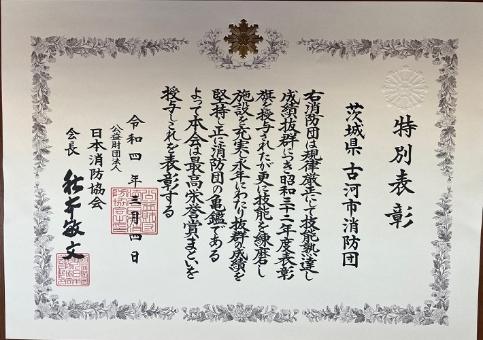 特別表彰
茨城県 古河市消防団
右消防団は規律厳正にして技能熟達し
成績抜群につき昭和三十二年度表彰
旗を授与されたが更に技能を練磨し
施設を充実し永年にわたり抜群の成績を
堅持し正に消防団の亀鑑である
よって本会は最高栄誉賞まといを
授与しこれを表彰する
令和四年三月四日
公益財団法人
日本消防協会
会長 秋本敏文